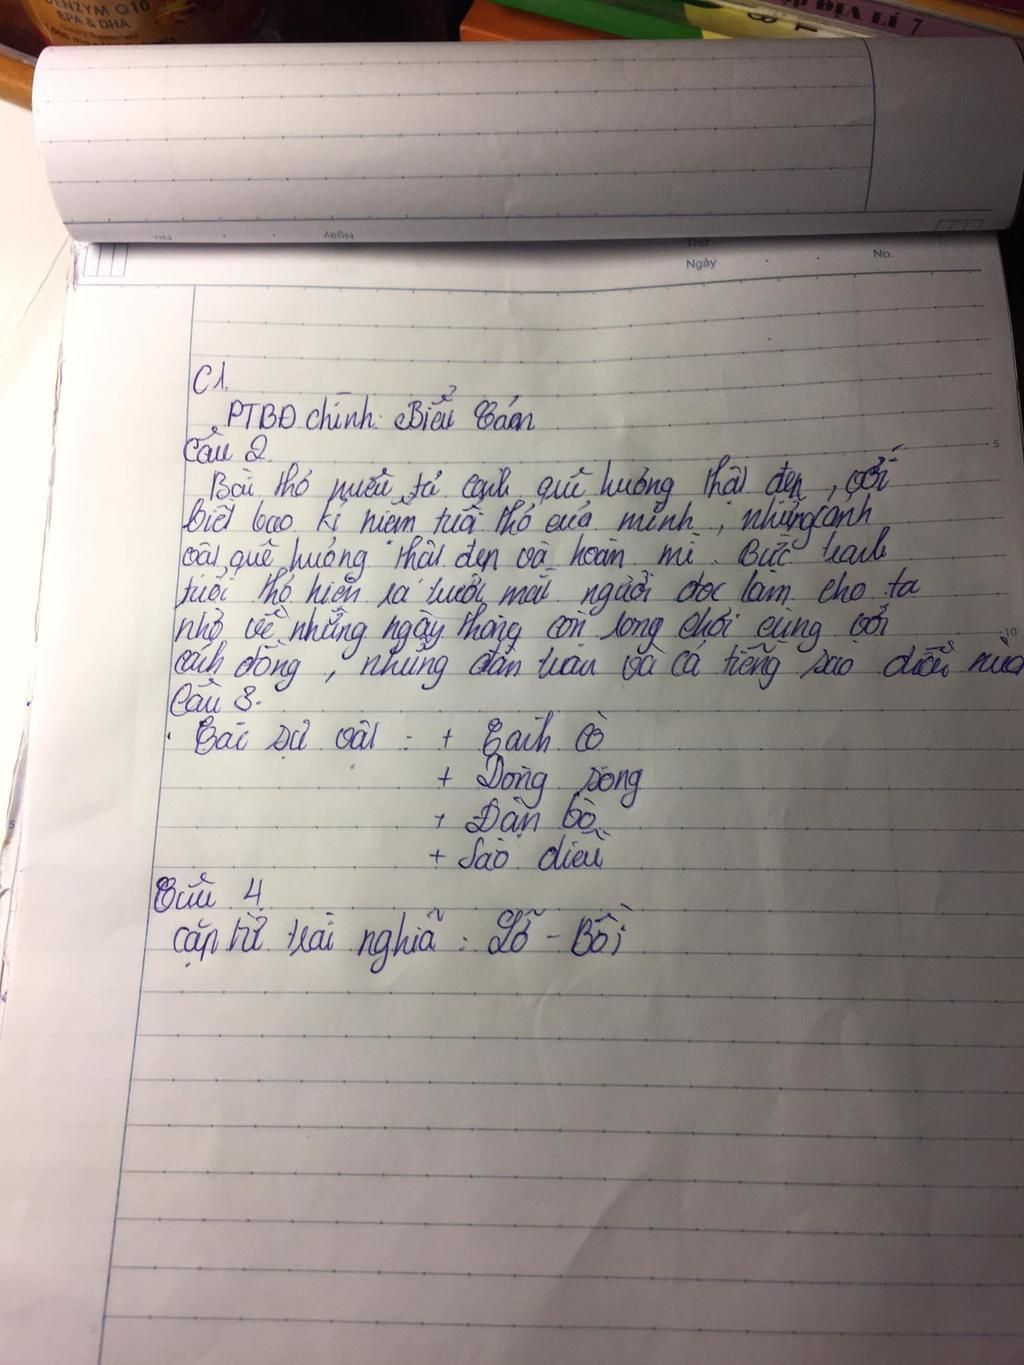 ENZYM Q10
EPA & DHA
ĐỊA LÍ 7
No.
Ngày
Thứ
Ngày
No.
C1.
PTBĐ chính: Biểu Cảm
Câu 2
Bài thơ miêu tả cảnh quê hương thật đẹp, với
biết bao kỉ niệm tuổi thơ của mình, những cảnh
vật quê hương thật đẹp và hoàn mĩ. Bức tranh
tuổi thơ hiện ra trước mắt người đọc làm cho ta
nhớ về những ngày tháng còn rong chơi cùng với
cánh đồng, những đàn trâu và cả tiếng sáo diều nữa
Câu 3.
Các sự vật: + Cánh cò
+ Dòng sông
+ Đàn bò
+ Sáo diều
Câu 4
cặp từ trái nghĩa: Lỡ - Bồi
5
10
5